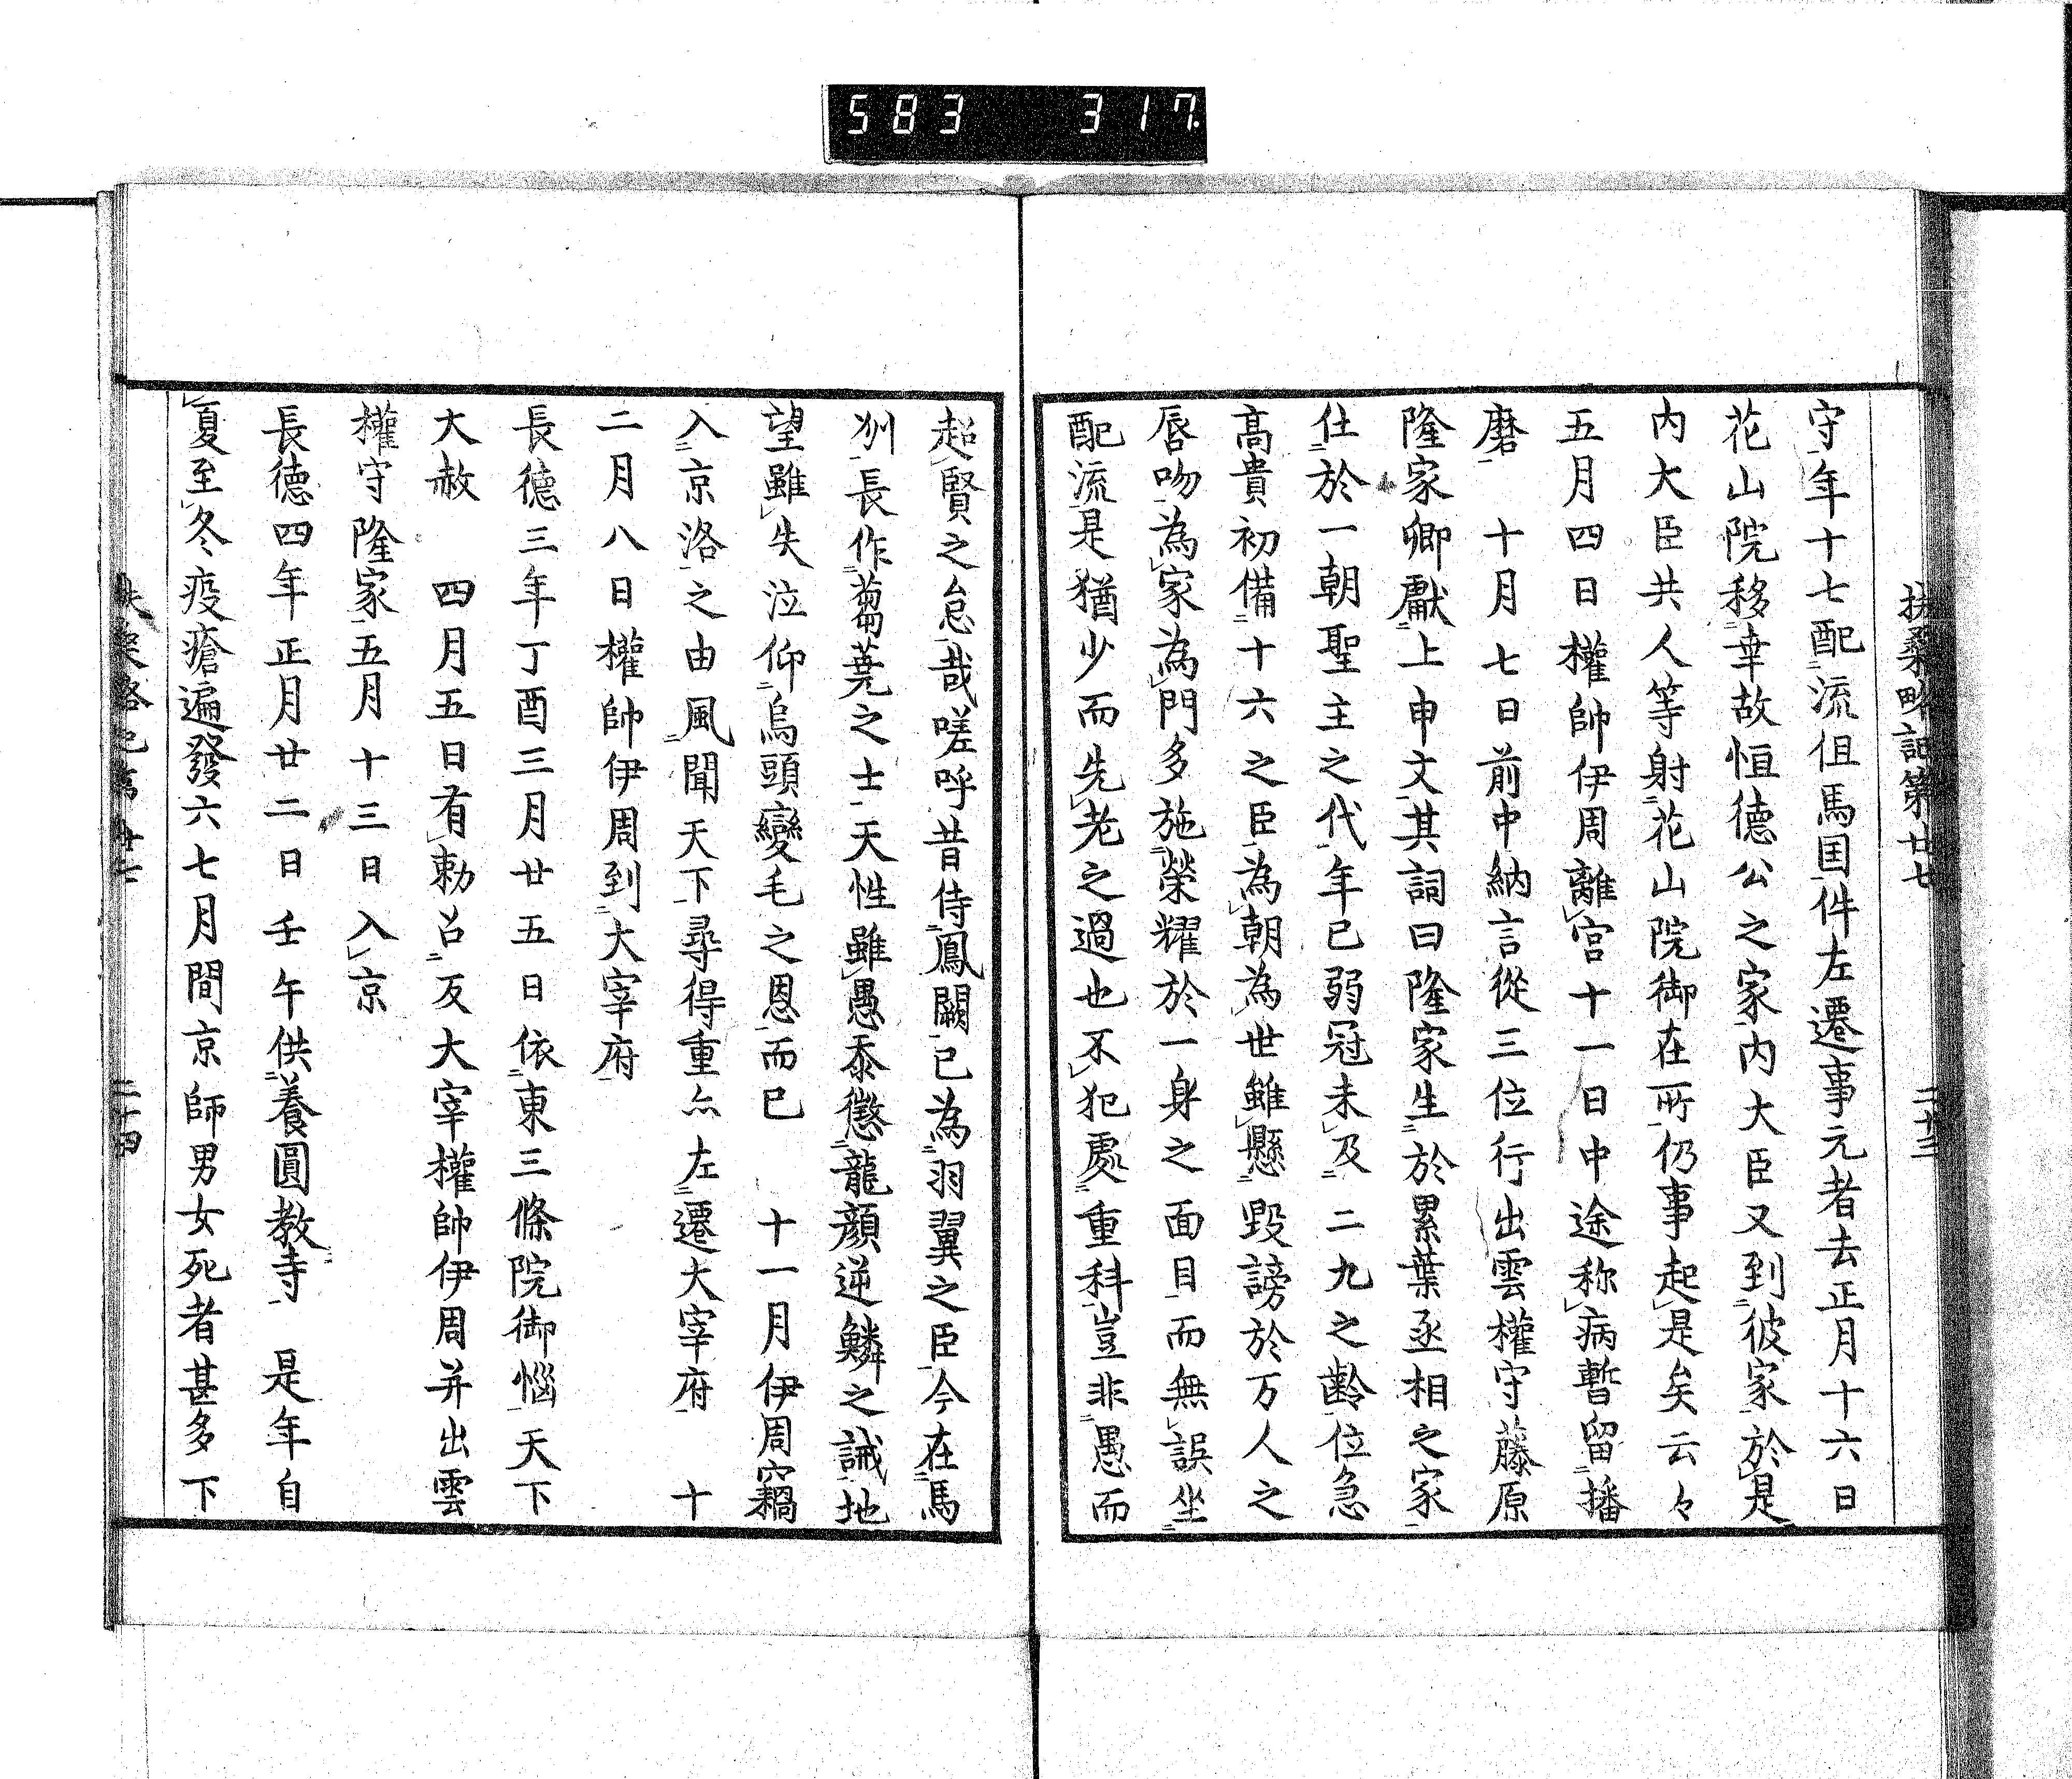 583 317.
扶桑略記第廿七 二十三
守年十七配流但馬国件左遷事元者去正月十六日
花山院移幸故恒德公之家内大臣又到彼家於是
内大臣共人等射花山院御在所仍事起是矣云々
五月四日權帥伊周離宮十一日中途称病暫留播
磨 十月七日前中納言從三位行出雲權守藤原
隆家卿獻上申文其詞曰隆家生於累葉丞相之家
仕於一朝聖主之代年已弱冠未及二九之齡位急
高貴初備十六之臣為朝為世雖懸毀謗於万人之
唇吻為家為門多施榮耀於一身之面目而無誤坐
配流是猶少而先老之過也不犯處重科豈非愚而
超賢之怠哉嗟呼昔侍鳳闕已為羽翼之臣今在馬
州長作蒭蕘之士天性雖愚忝懲龍顔逆鱗之誡地
望雖失泣仰烏頭變毛之恩而已 十一月伊周竊
入京洛之由風聞天下尋得重亦左遷大宰府 十
二月八日權帥伊周到大宰府
長德三年丁酉三月廿五日依東三條院御惱天下
大赦 四月五日有勅召反大宰權帥伊周并出雲
權守隆家五月十三日入京
長德四年正月廿二日壬午供養圓教寺 是年自
夏至冬疫瘡遍發六七月間京師男女死者甚多下
二十四